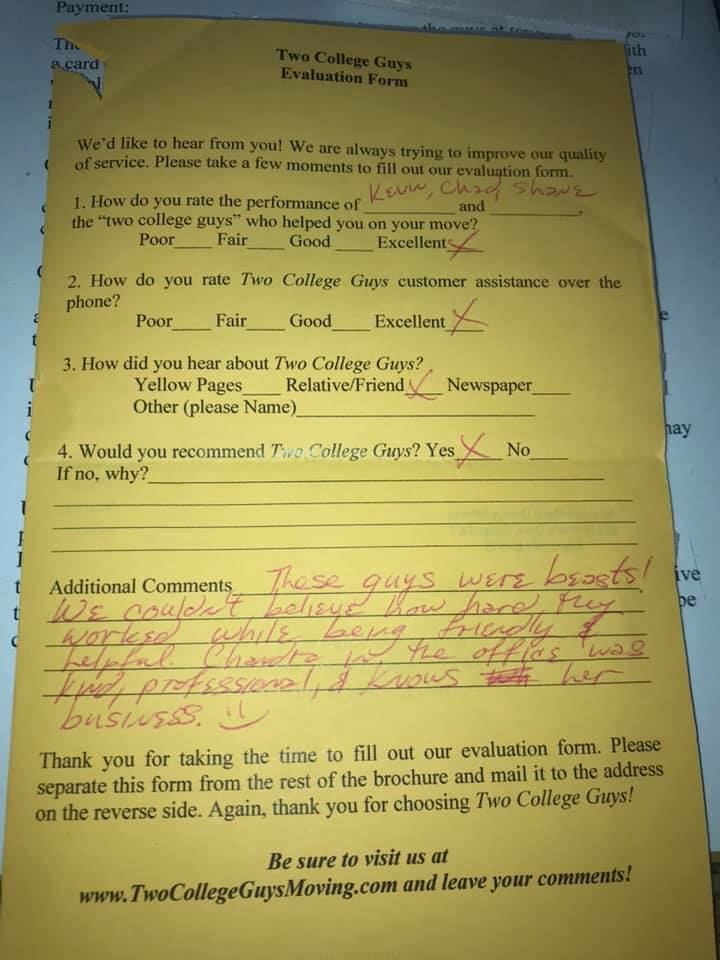 Payment:
a card
Two College Guys
Evaluation Form
We'd like to hear from you! We are always trying to improve our quality
of service. Please take a few moments to fill out our evaluation form.
Kevin, Chad, Shane
1. How do you rate the performance of ________ and ________,
the "two college guys" who helped you on your move?
Poor____ Fair____ Good ____ Excellent X
2. How do you rate Two College Guys customer assistance over the
phone?
Poor____ Fair____ Good____ Excellent X
3. How did you hear about Two College Guys?
Yellow Pages____ Relative/Friend X Newspaper____
Other (please Name)____
4. Would you recommend Two College Guys? Yes X No____
If no, why?____
Additional Comments These guys were beasts!
We couldn't believe how hard they
worked while being friendly &
helpful. Chandra in the office was
kind, professional, & knows her
business. :)
Thank you for taking the time to fill out our evaluation form. Please
separate this form from the rest of the brochure and mail it to the address
on the reverse side. Again, thank you for choosing Two College Guys!
Be sure to visit us at
www.TwoCollegeGuysMoving.com and leave your comments!